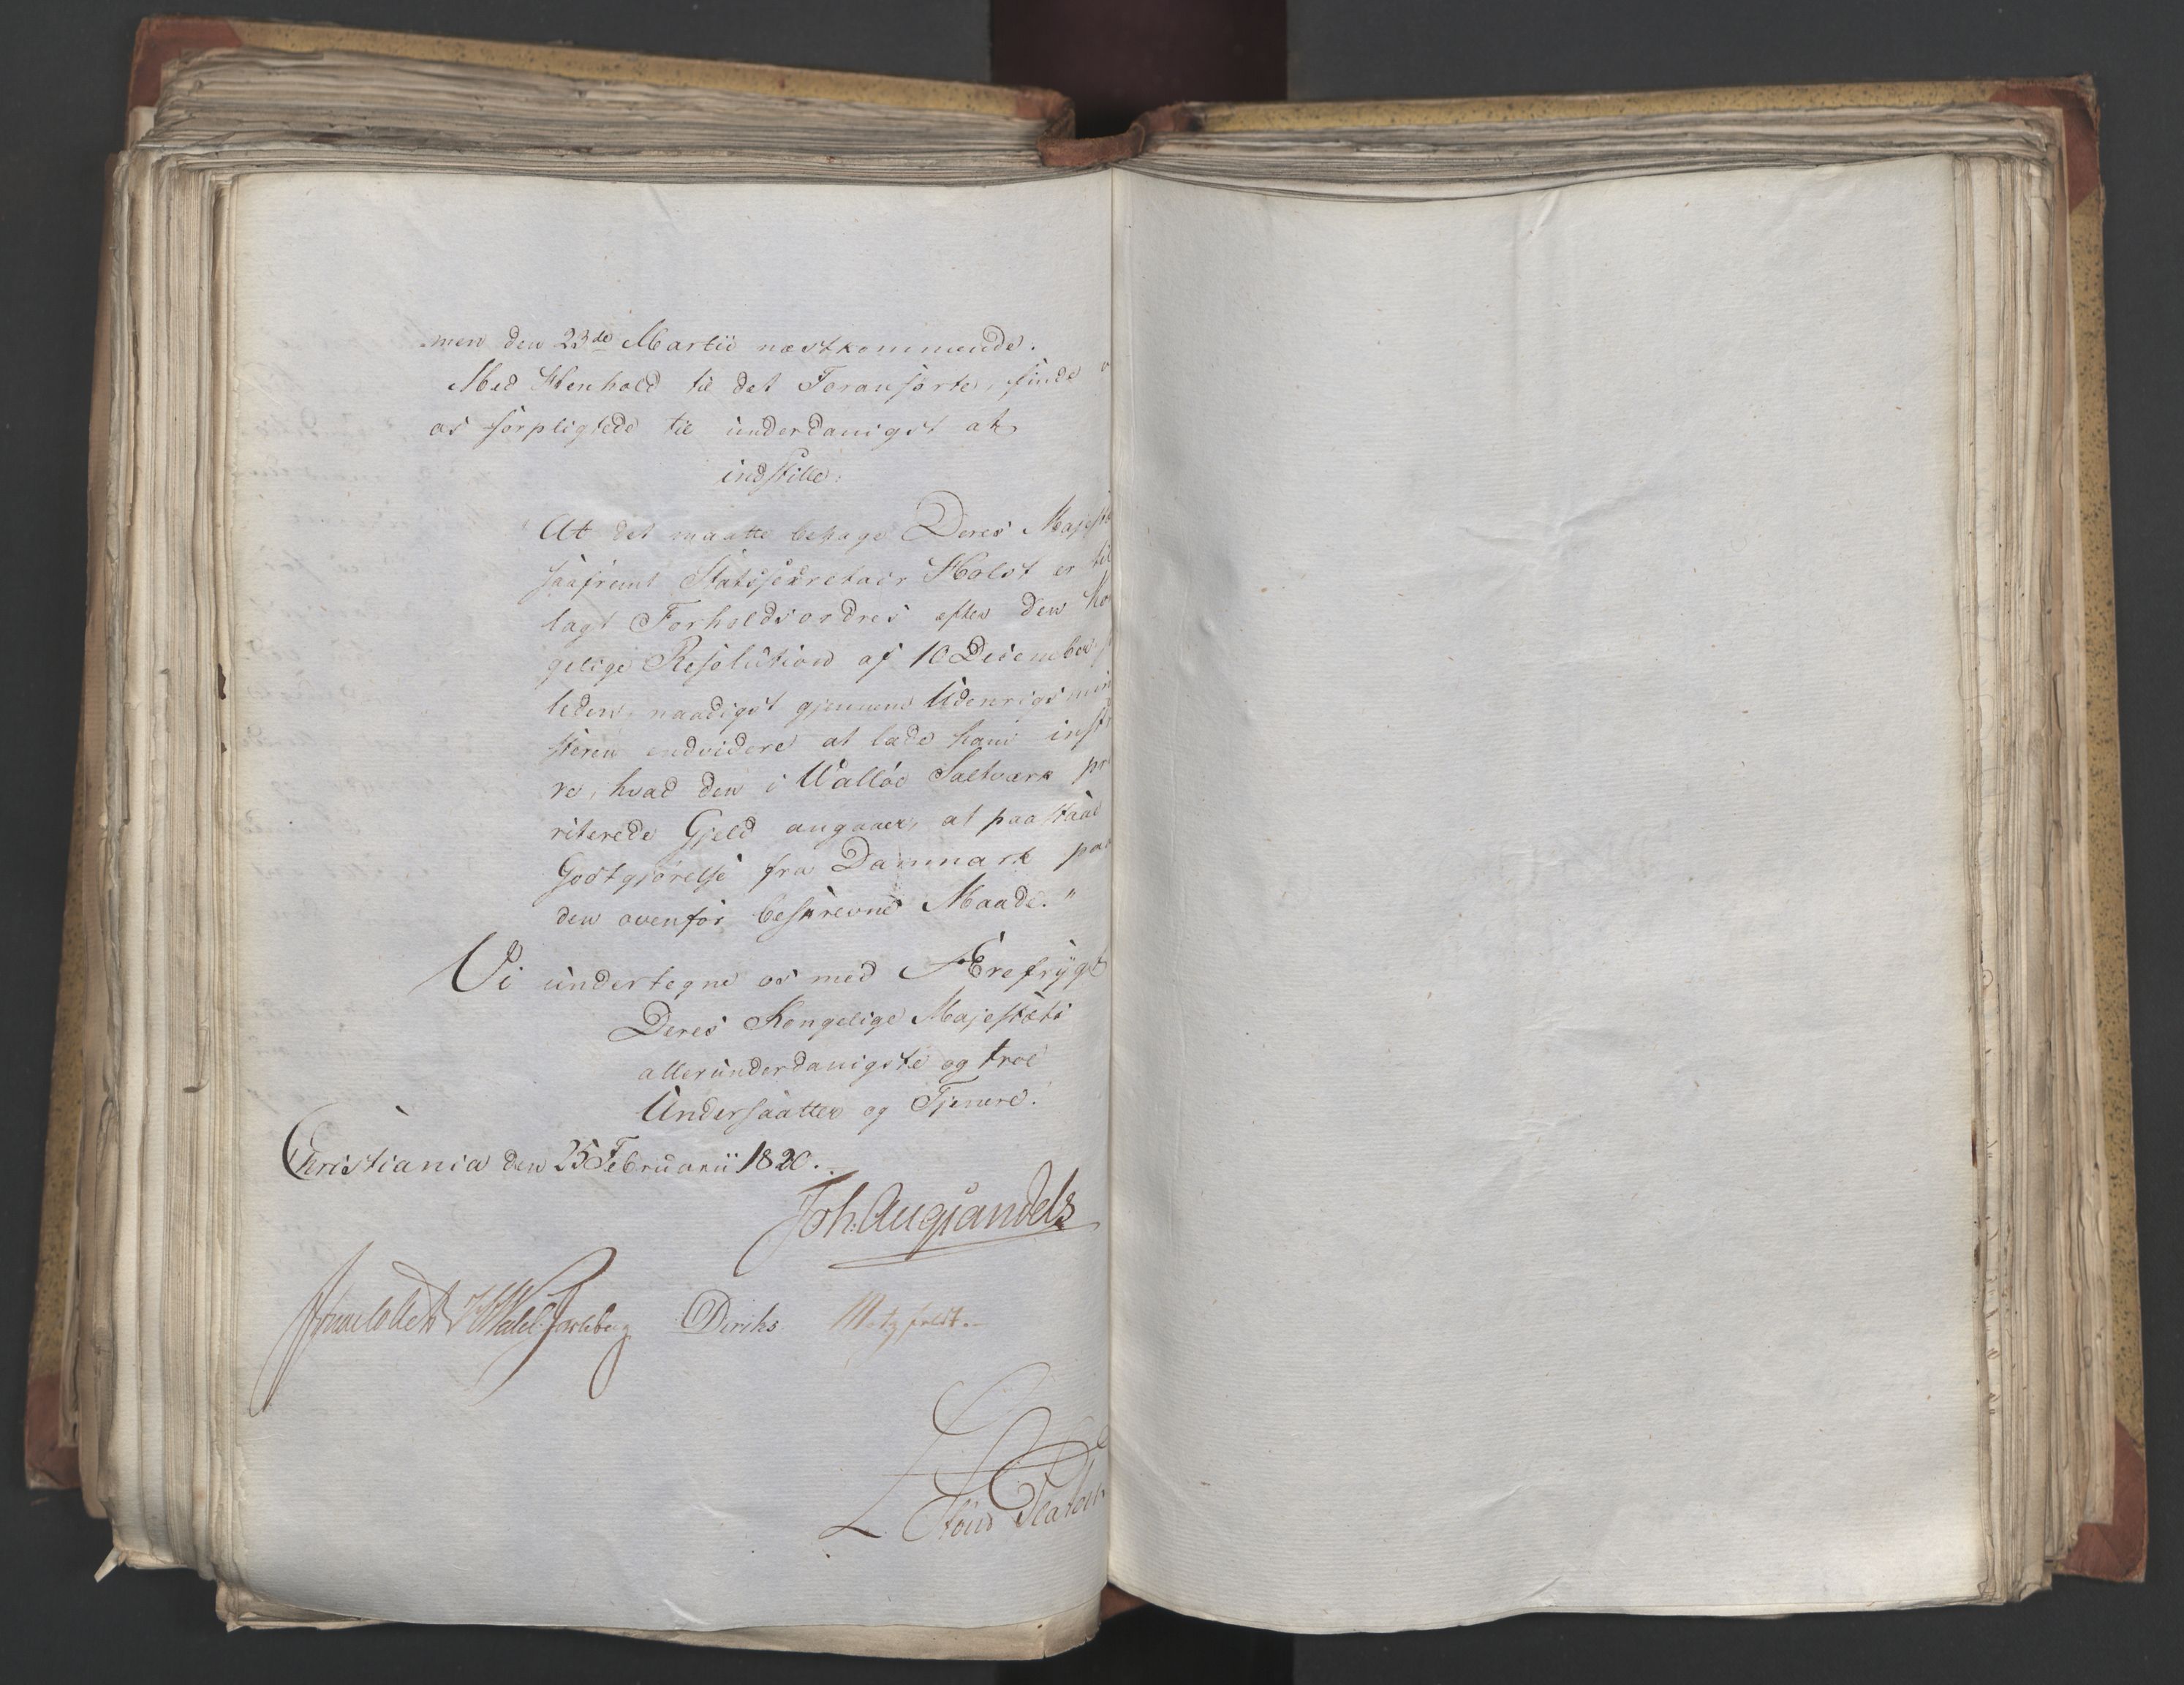 men den 23de Martii næstkommende.
Med Henhold til det Foranførte, finde v
os forpligtede til underdanigst at
indstille:
"At det maatte behage Deres Majestæ
saafremt Statssekretair Holst er til
lagt Forholdsordres efter den Ko
gelige Resolution af 10 December f
leden, naadigst gjennem Udenrigsmini
steren endvidere at lade ham instr
re, hvad den i Walløe Saltværk pr
riterede Gjeld angaaer, at paastaae
Godtgjørelse fra Danmark paa
den ovenfor beskrevne Maade."
Vi undertegne os med Ærefrygt
Deres Kongelige Majestæts
allerunderdanigste og troe
Undersaatter og Tjenere.
Christiania den 25 Februarii 1820.
Joh: Aug: Sandels
Sommerhielm Diriks Motzfeldt.